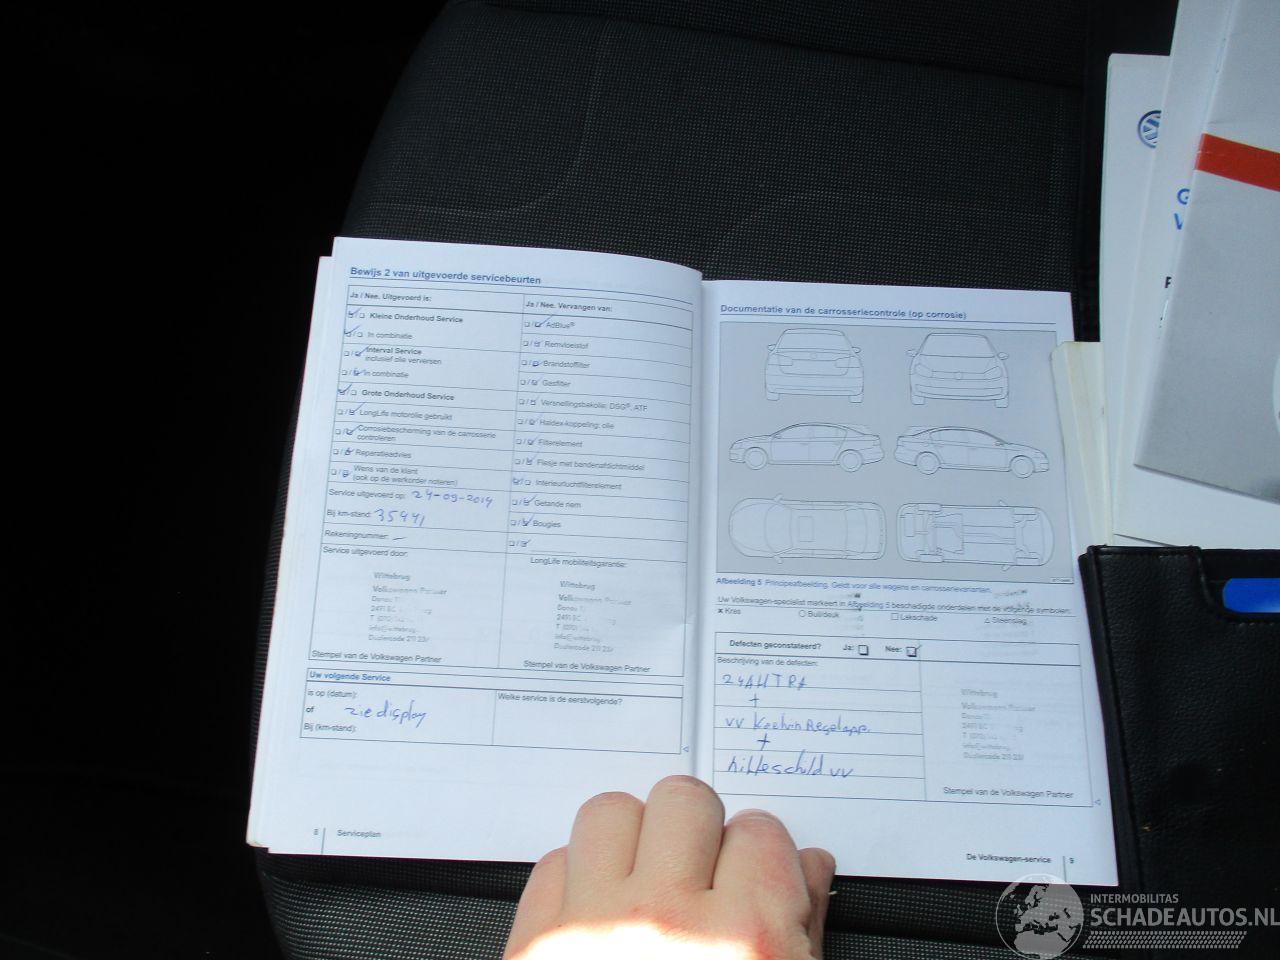 Bewijs 2 van uitgevoerde servicebeurten
Ja / Nee. Uitgevoerd is:
Kleine Onderhoud Service
In combinatie
Interval Service
inclusief olie verversen
In combinatie
Grote Onderhoud Service
LongLife motorolie gebruikt
Corrosiebescherming van de carrosserie
controleren
Reparatieadvies
Wens van de klant
(ook op de werkorder noteren)
Service uitgevoerd op: 24-09-2014
Bij km-stand: 35441
Rekeningnummer: —
Service uitgevoerd door:
Wittebrug
Volkswagen
Donau
2491 BC
T (070)
Stempel van de Volkswagen Partner
Ja / Nee. Vervangen van:
AdBlue®
Remvloeistof
Brandstoffilter
Gasfilter
Versnellingsbakolie: DSG®, ATF
Haldex-koppeling: olie
Filterelement
Flesje met bandenafdichtmiddel
Interieurluchtfilterelement
Getande riem
Bougies
LongLife mobiliteitsgarantie:
Wittebrug
Volkswagen
Donau
2491 BC
T (070)
Stempel van de Volkswagen Partner
Uw volgende Service
is op (datum):
of zie display
Bij (km-stand):
Welke service is de eerstvolgende?
8 Serviceplan
Documentatie van de carrosseriecontrole (op corrosie)
Afbeelding 5 Principeafbeelding. Geldt voor alle wagens en carrosserievarianten.
Uw Volkswagen-specialist markeert in Afbeelding 5 beschadigde onderdelen met de volgende symbolen:
x Kras
Buil/deuk
Lakschade
Steenslag
Defecten geconstateerd? Ja: Nee:
Beschrijving van de defecten:
+
vv
+
hitteschild vv
Wittebrug
Volkswagen
Donau
2491 BC
T (070)
Stempel van de Volkswagen Partner
De Volkswagen-service 9
INTERMOBILITAS
SCHADEAUTOS.NL